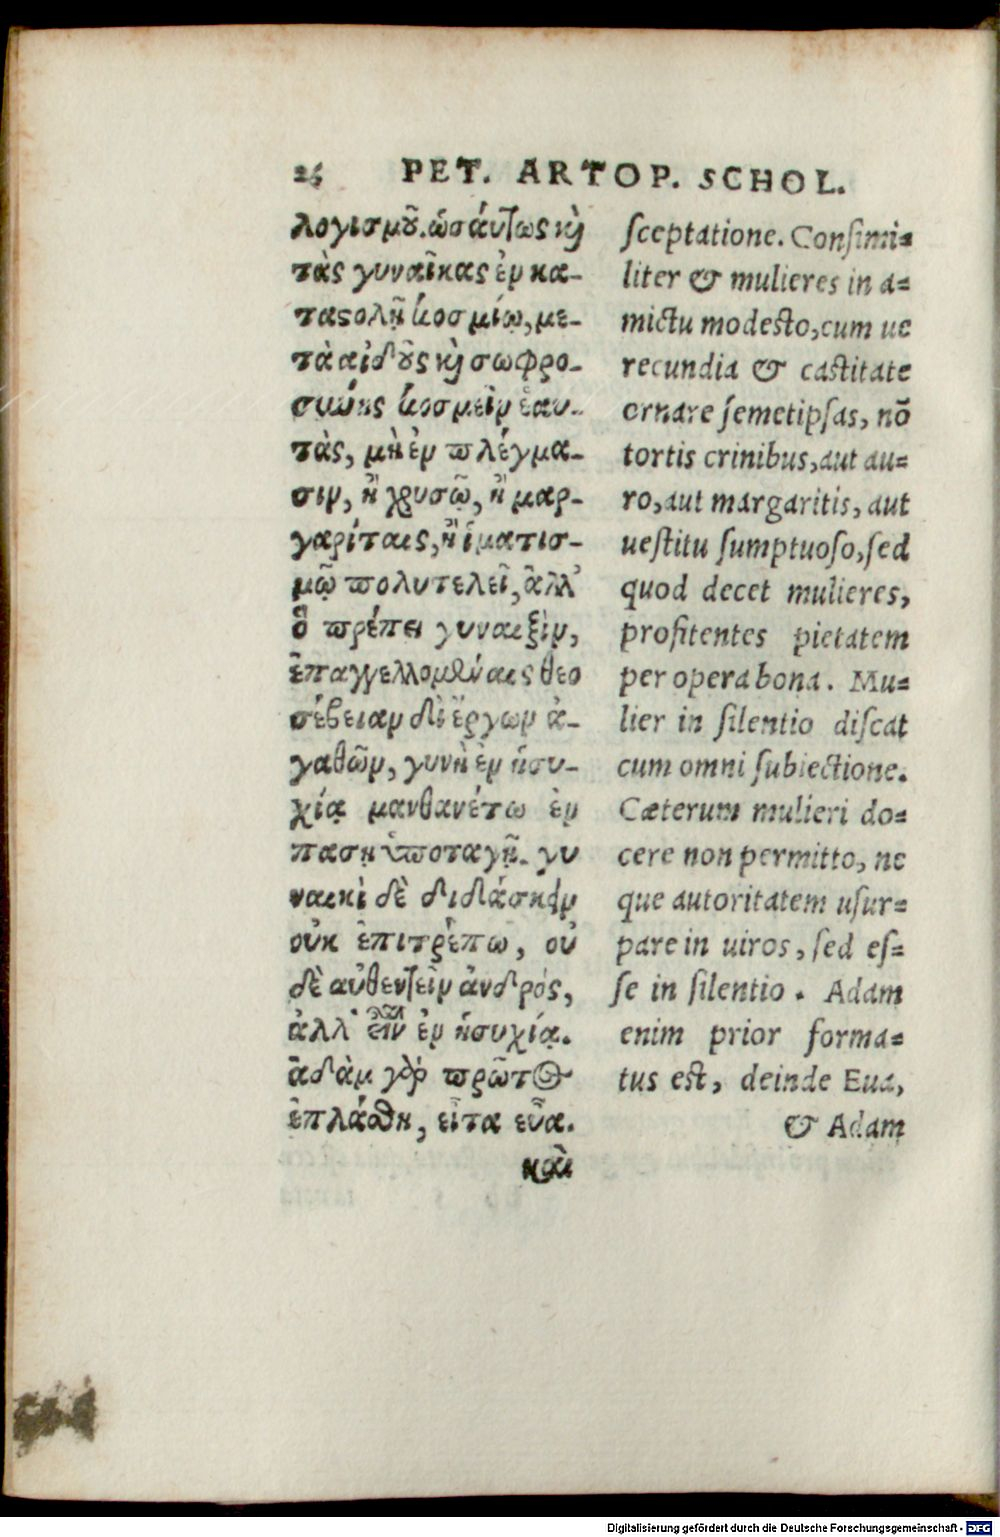 PET. ARTOP. SCHOL.
λογισμοῦ. ὡσάυτως κὶ
τὰς γυναῖκας ἐν κα-
ταστολῇ κοσμίῳ, με-
τὰ αἰδοῦς κὶ σωφρο-
σύνης κοσμεῖν ἑαυ-
τὰς, μὴ ἐν πλέγμα-
σιν, ἢ χρυσῷ, ἢ μαρ-
γαρίταις, ἢ ἱματισ-
μῷ πολυτελεῖ, ἀλλ'
ὃ πρέπει γυναιξὶν,
ἐπαγγελλομέναις θεο
σέβειαν δι' ἔργων ἀ-
γαθῶν, γυνὴ ἐν ἡσυ-
χίᾳ μανθανέτω ἐν
πασῃ ὑποταγῇ. γυ
ναικὶ δὲ διδάσκειν
οὐκ ἐπιτρέπω, οὐ
δὲ αὐθεντεῖν ἀνδρός,
ἀλλ' εἶναι ἐν ἡσυχίᾳ.
ἀδὰμ γὰρ πρῶτος
ἐπλάσθη, εἶτα εὖα.
καὶ
sceptatione. Consimi=
liter & mulieres in a=
mictu modesto, cum ue
recundia & castitate
ornare semetipsas, nō
tortis crinibus, aut au=
ro, aut margaritis, aut
uestitu sumptuoso, sed
quod decet mulieres,
profitentes pietatem
per opera bona. Mu=
lier in silentio discat
cum omni subiectione.
Cæterum mulieri do=
cere non permitto, ne
que autoritatem usur=
pare in uiros, sed es=
se in silentio. Adam
enim prior forma=
tus est, deinde Eua,
& Adam
Digitalisierung gefördert durch die Deutsche Forschungsgemeinschaft - DFG